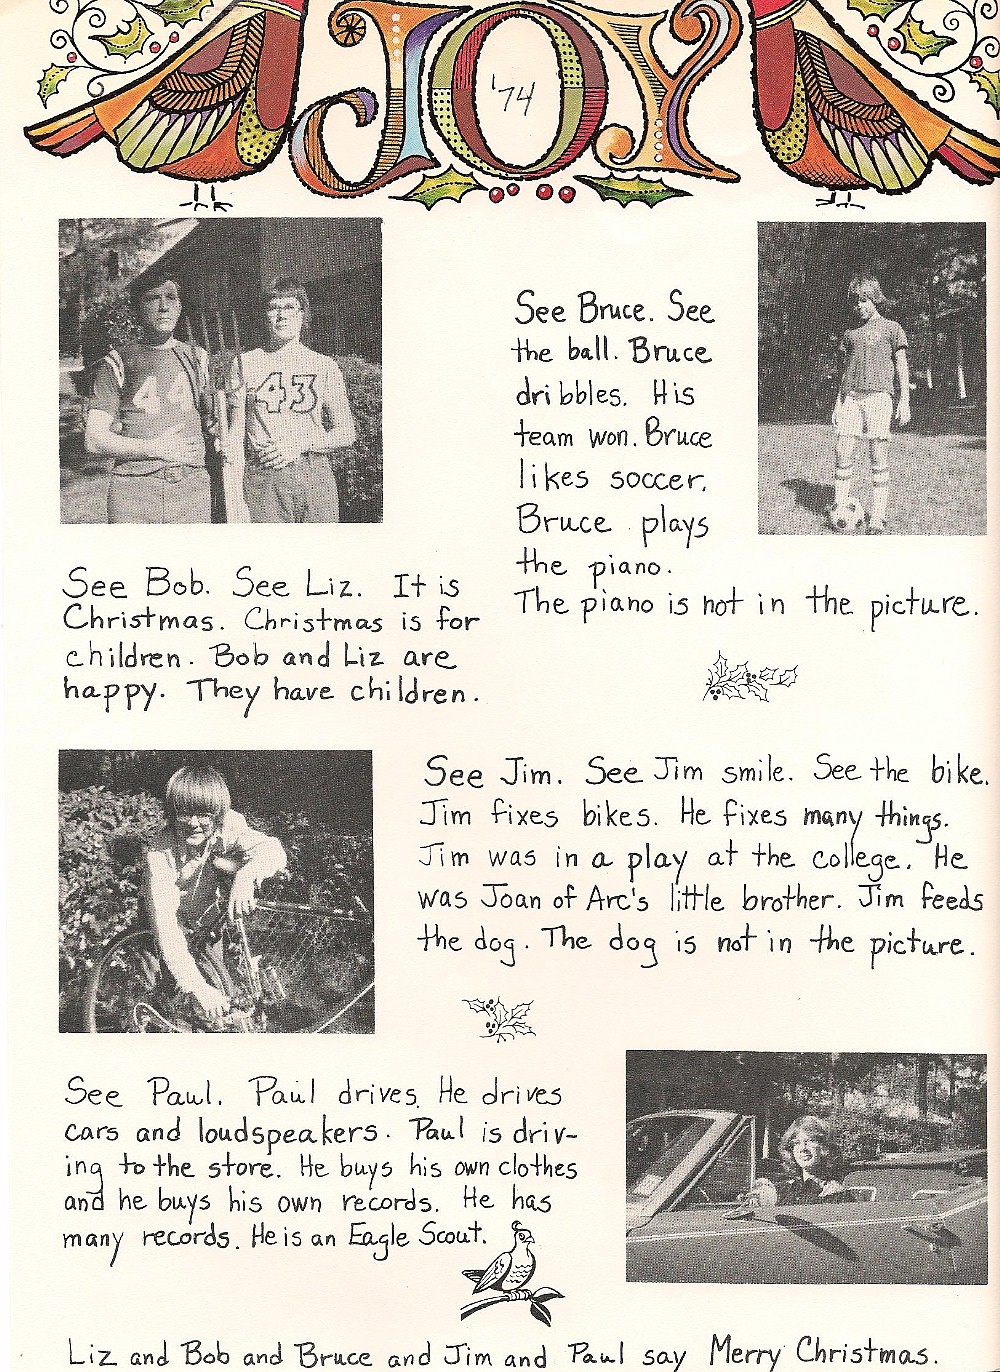 JOY
'74
44
43
See Bruce. See
the ball. Bruce
dribbles. His
team won. Bruce
likes soccer.
Bruce plays
the piano.
The piano is not in the picture.
See Bob. See Liz. It is
Christmas. Christmas is for
children. Bob and Liz are
happy. They have children.
See Jim. See Jim smile. See the bike.
Jim fixes bikes. He fixes many things.
Jim was in a play at the college. He
was Joan of Arc's little brother. Jim feeds
the dog. The dog is not in the picture.
See Paul. Paul drives. He drives
cars and loudspeakers. Paul is driv-
ing to the store. He buys his own clothes
and he buys his own records. He has
many records. He is an Eagle Scout.
Liz and Bob and Bruce and Jim and Paul say Merry Christmas.